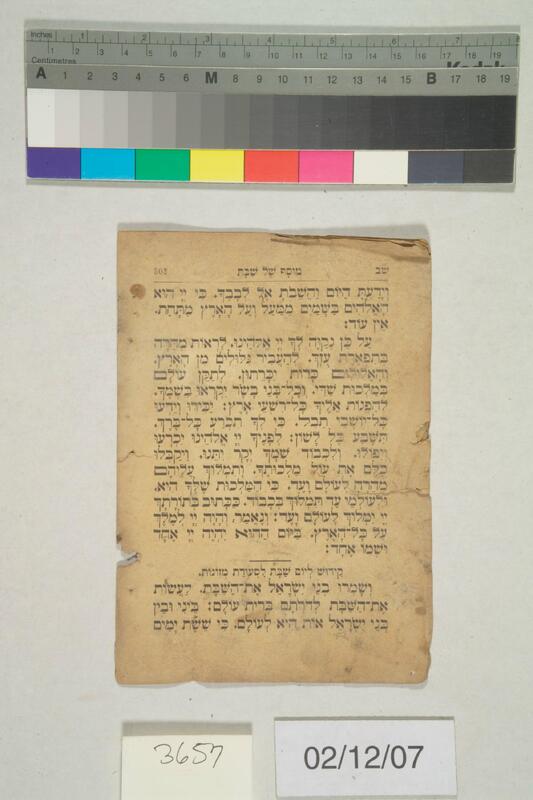 Inches 1 2 3 4 5 6 7 8
Centimetres 1 2 3 4 5 6 7 8 9 10 11 12 13 14 15 16 17 18 19
Kodak
A 1 2 3 4 5 6 M 8 9 10 11 12 13 14 15 B 17 18 19
שב מוסף של שבת 302
וְיָדַעְתָּ הַיּוֹם וַהֲשֵׁבֹתָ אֶל לְבָבֶךָ. כִּי יְיָ הוּא
הָאֱלֹהִים בַּשָּׁמַיִם מִמַּעַל וְעַל הָאָרֶץ מִתָּחַת.
אֵין עוֹד:
עַל כֵּן נְקַוֶּה לְךָ יְיָ אֱלֹהֵינוּ. לִרְאוֹת מְהֵרָה
בְּתִפְאֶרֶת עֻזֶּךָ. לְהַעֲבִיר גִּלּוּלִים מִן הָאָרֶץ.
וְהָאֱלִילִים כָּרוֹת יִכָּרֵתוּן. לְתַקֵּן עוֹלָם
בְּמַלְכוּת שַׁדַּי. וְכָל־בְּנֵי בָשָׂר יִקְרְאוּ בִשְׁמֶךָ.
לְהַפְנוֹת אֵלֶיךָ כָּל־רִשְׁעֵי אָרֶץ: יַכִּירוּ וְיֵדְעוּ
כָּל־יוֹשְׁבֵי תֵבֵל. כִּי לְךָ תִכְרַע כָּל־בֶּרֶךְ.
תִּשָּׁבַע כָּל לָשׁוֹן: לְפָנֶיךָ יְיָ אֱלֹהֵינוּ יִכְרְעוּ
וְיִפּוֹלוּ. וְלִכְבוֹד שִׁמְךָ יְקָר יִתֵּנוּ. וִיקַבְּלוּ
כֻלָּם אֶת עוֹל מַלְכוּתֶךָ. וְתִמְלוֹךְ עֲלֵיהֶם
מְהֵרָה לְעוֹלָם וָעֶד. כִּי הַמַּלְכוּת שֶׁלְּךָ הִיא.
וּלְעוֹלְמֵי עַד תִּמְלוֹךְ בְּכָבוֹד. כַּכָּתוּב בְּתוֹרָתֶךָ
יְיָ יִמְלוֹךְ לְעוֹלָם וָעֶד: וְנֶאֱמַר וְהָיָה יְיָ לְמֶלֶךְ
עַל כָּל־הָאָרֶץ. בַּיּוֹם הַהוּא יִהְיֶה יְיָ אֶחָד
וּשְׁמוֹ אֶחָד:
קידוש ליום שבת לסעודת
וְשָׁמְרוּ בְנֵי יִשְׂרָאֵל אֶת־הַשַּׁבָּת. לַעֲשׂוֹת
אֶת־הַשַּׁבָּת לְדֹרֹתָם בְּרִית עוֹלָם: בֵּינִי וּבֵין
בְּנֵי יִשְׂרָאֵל אוֹת הִיא לְעוֹלָם. כִּי שֵׁשֶׁת יָמִים
3657
02/12/07